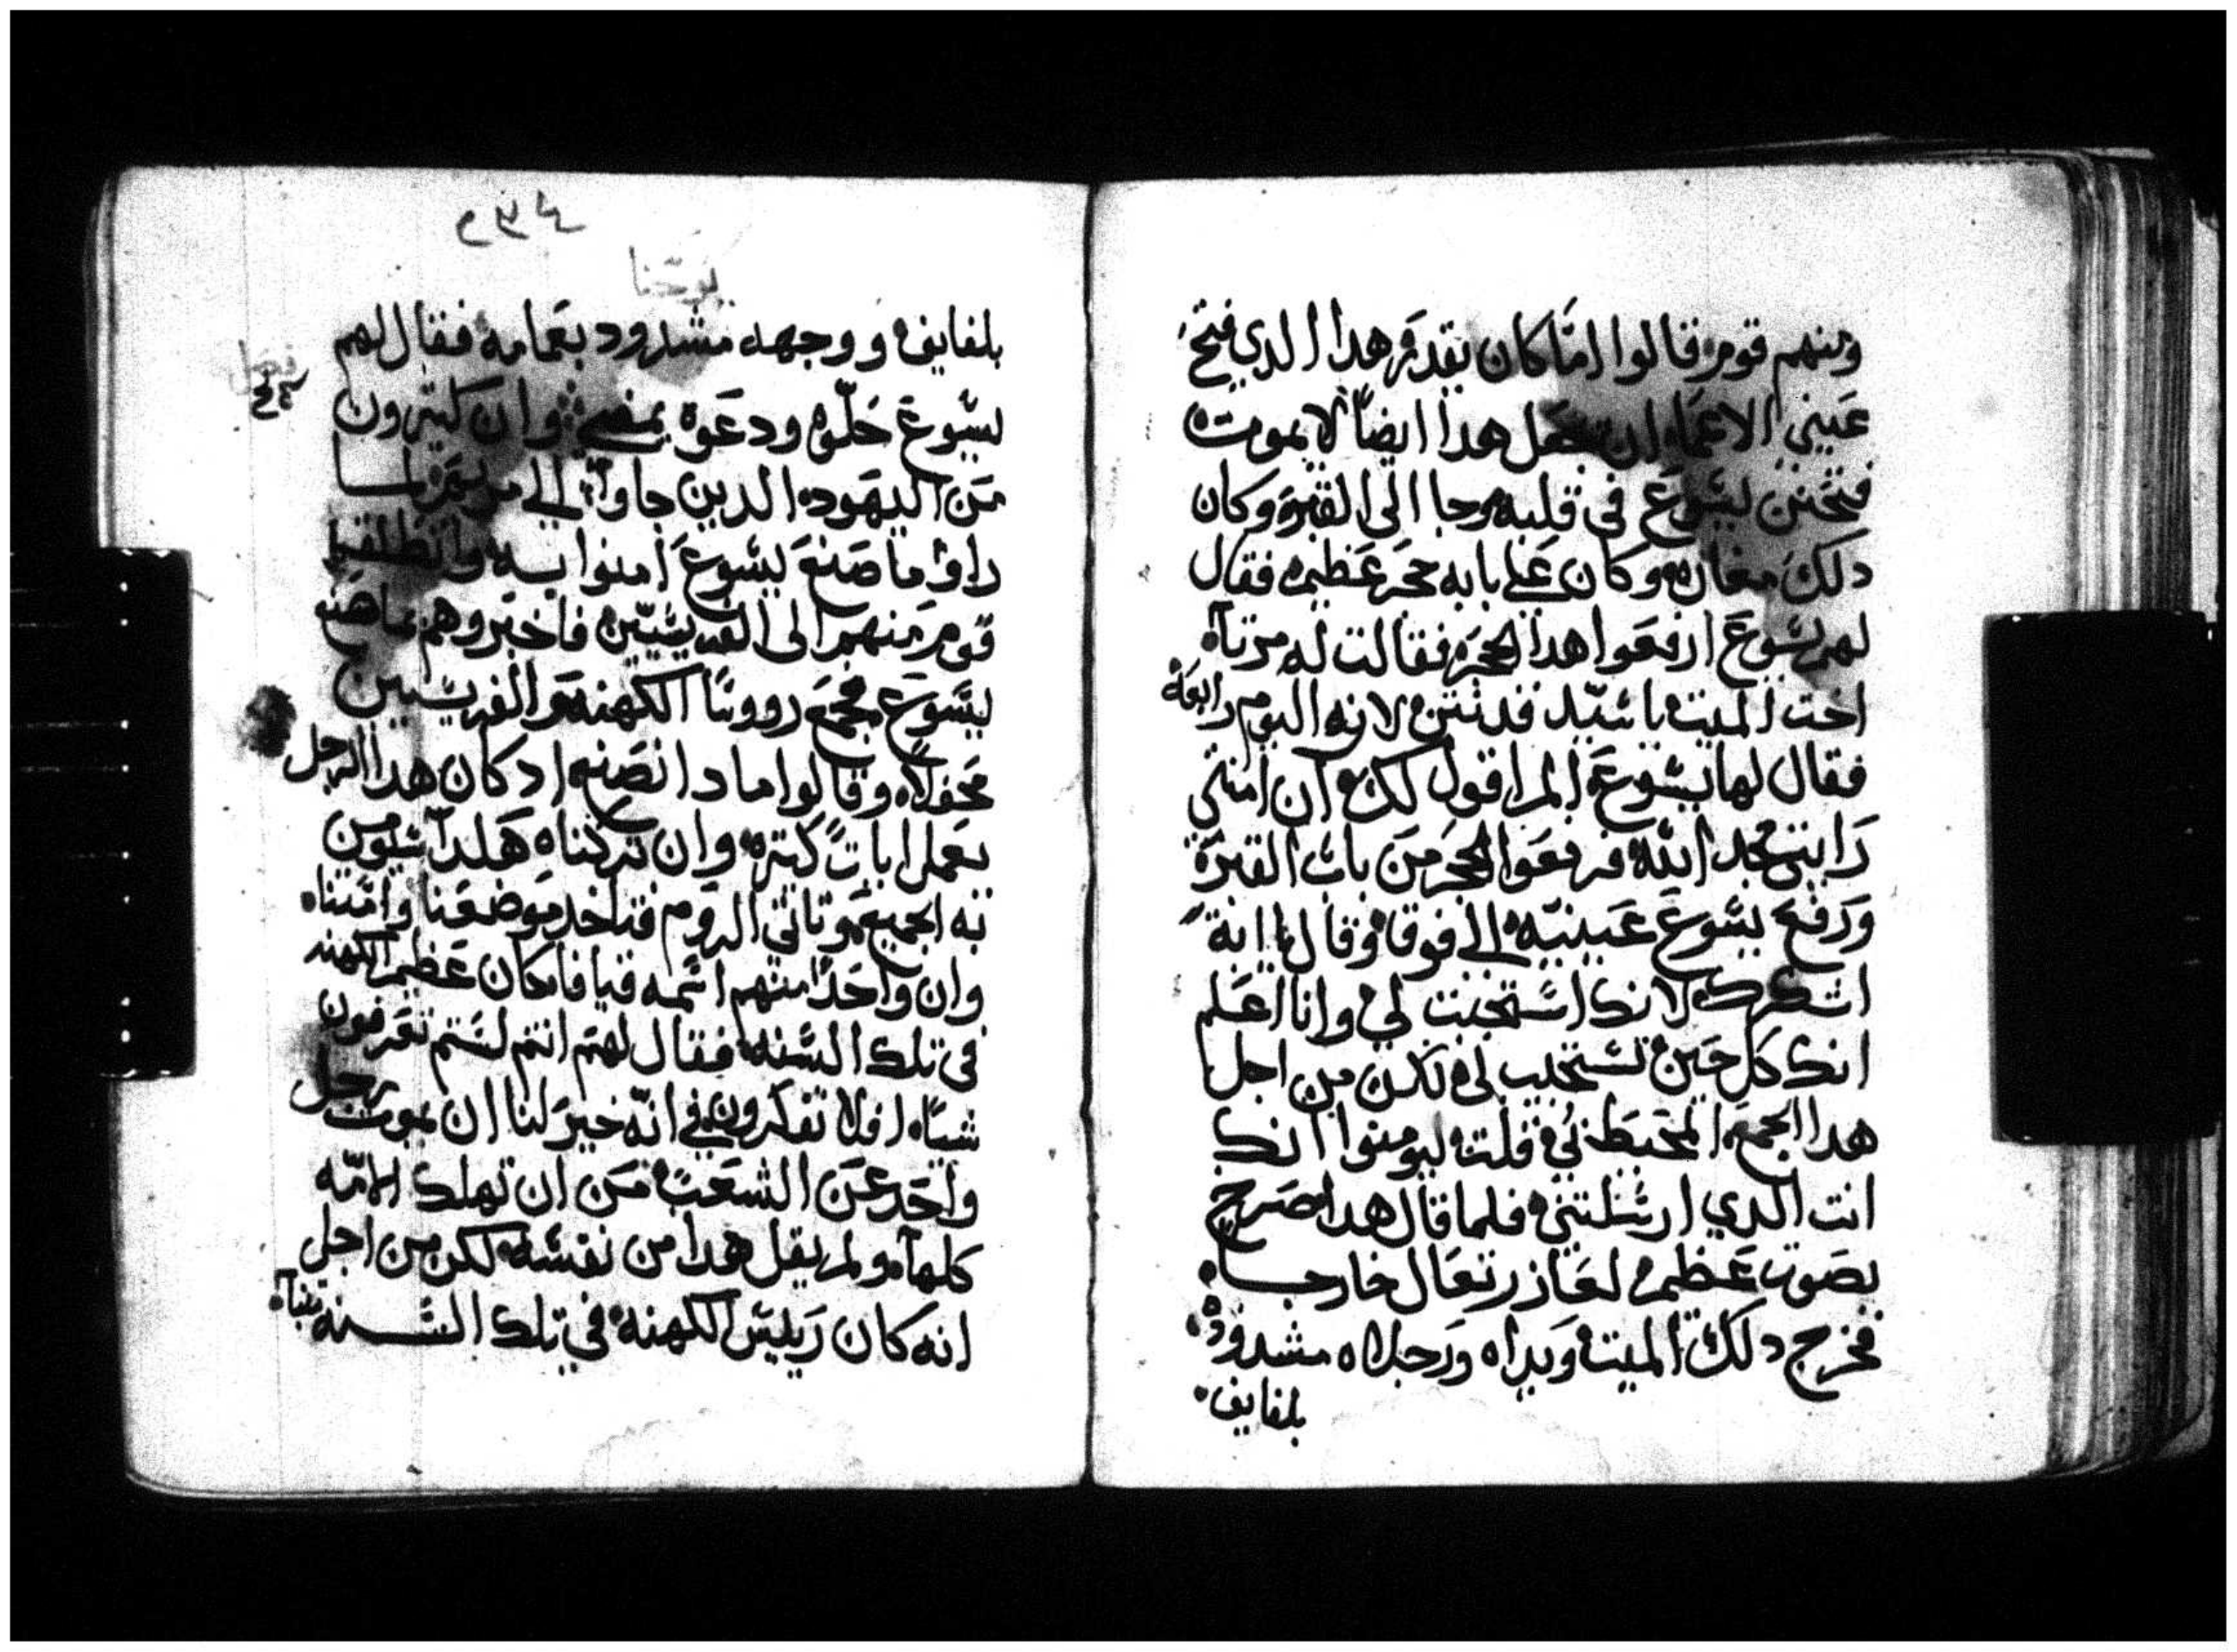 ومنهم قوم قالوا اما كان يقدر هدا الدي فتح
عيني الاعما ان يجعل هدا ايضاً لا يموت
فتحنن يسوع في قلبه وجا الى القبر وكان
دلك مغاره وكان علي بابه حجر عظيم فقال
لهم يسوع ارفعوا هدا الحجر فقالت له مرتا
اخت الميت يا سيد قد نتن لانه اليوم رابعة
فقال لها يسوع الم اقول لك ان امنتي
رايتي مجد الله فرفعوا الحجر من باب القبر
ورفع يسوع عينيه الي فوق وقال يا ابة
اشكرك لانك استجبت لي وانا اعلم
انك كل حين تستجيب لي لكن من اجل
هدا الجمع المحيط بي قلت ليومنوا انك
انت الدي ارسلتني فلما قال هدا صرخ
بصوت عظيم لعازر تعال خارجا
فخرج دلك الميت ويداه ورجلاه مشدود
بلفايف
يوحنا
بلفايف ووجهه مشدود بعمامه فقال لهم
يسوع حلّوه ودعوه يمضي وان كتيرون
فصل
من اليهود الدين جاوا الي مريم لما
راوا ما صنع يسوع امنوا به وانطلق
قوم منهم الى الفريسيّين فاخبروهم بما صنع
يسوع فجمع رووسا الكهنه والفريسيين
محفلاً وقالوا مادا نصنع اد كان هدا الرجل
يعمل ايات كتره وان تركناه هكدا سيومن
به الجميع وتاتي الروم فتاخد موضعنا وامتنا
وان واحداً منهم اسمه قيافا كان عظيم الكهنه
في تلك السنه فقال لهم انتم لستم تعرفون
شياً افلا تفكرون في انّه خير لنا ان يموت رجل
واحد عن الشعب من ان تهلك الامّه
كلها ولم يقل هدا من نفسه لكن من اجل
انه كان رييس الكهنه في تلك السنه تنبا